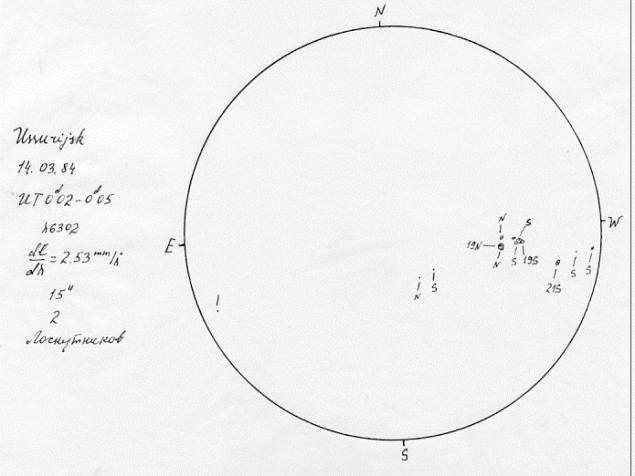 N
Ussurijsk
14. 03. 84
UT 0ᵈ02 - 0ᵈ05
λ6302
dl/dλ = 2.53 mm/Å
15"
2
Лоскутников
E
W
N
S
19N
N
S
19S
21S
S
S
N
S
!
S